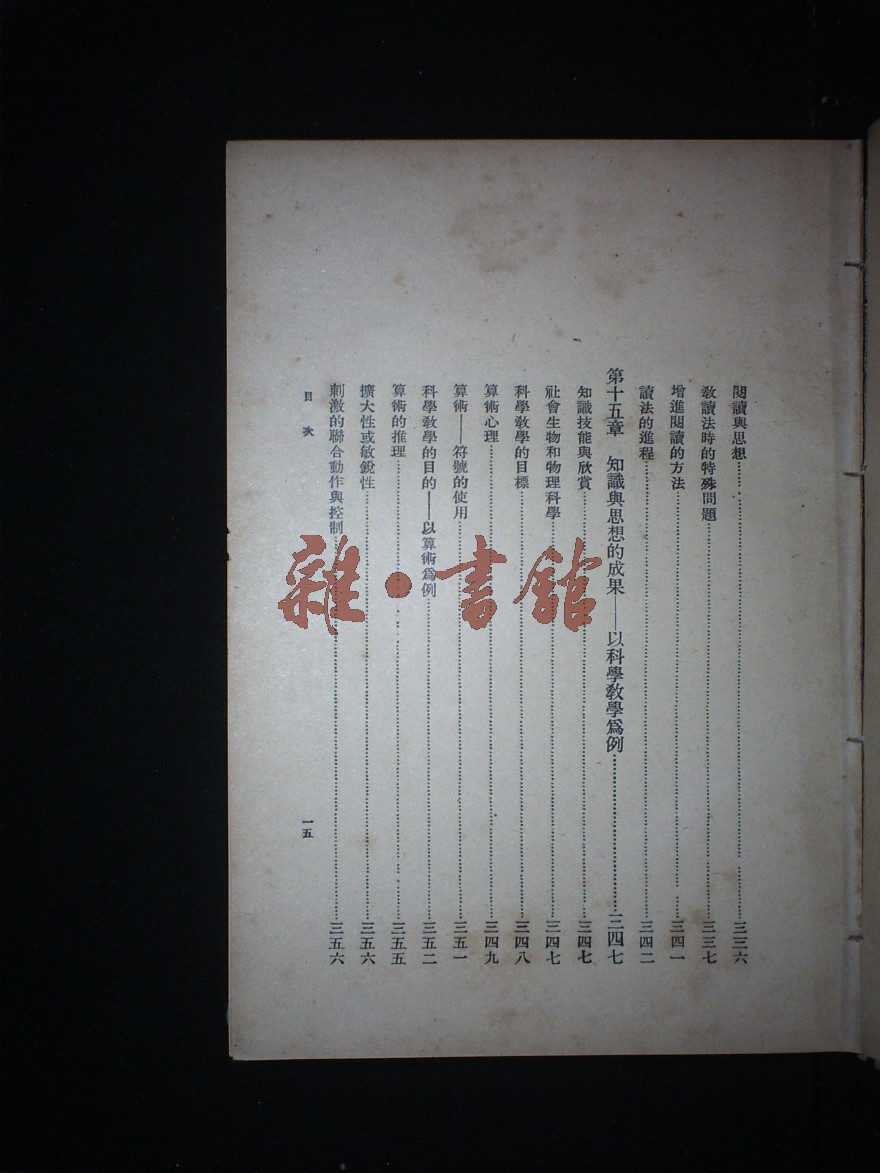 閱讀與思想……三三六
敎讀法時的特殊問題……三三七
增進閱讀的方法……三四一
讀法的進程……三四二
第十五章　知識與思想的成果——以科學敎學爲例……三四七
知識技能與欣賞……三四七
社會生物和物理科學……三四七
科學敎學的目標……三四八
算術心理……三四九
算術——符號的使用……三五一
科學敎學的目的——以算術爲例……三五二
算術的推理……三五五
擴大性或敏銳性……三五六
刺激的聯合動作與控制……三五六
目次
一五
雜·書館